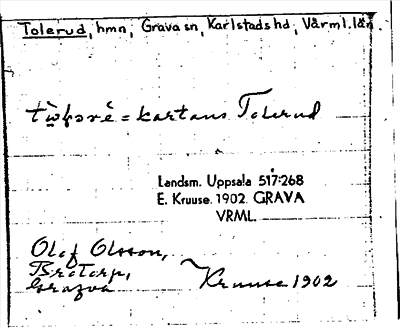 Tolerud, hmn, Grava sn, Karlstads hd, Värml. län.
= kartans Tolerud
Landsm. Uppsala 517:268
E. Kruuse. 1902. GRAVA
VRML.
Olof Olsson,
Grava
Kruuse 1902